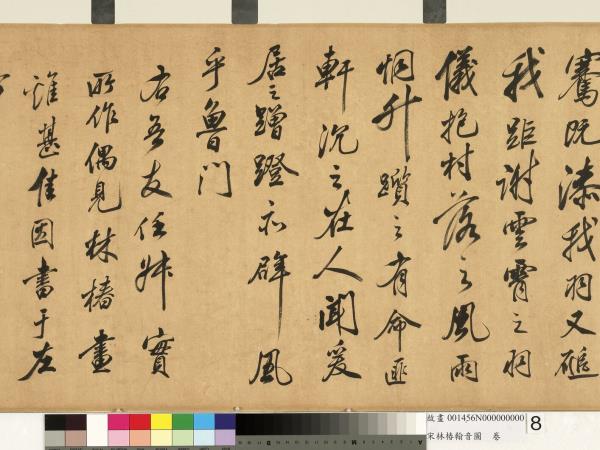 騫既漆我羽又磓
我距謝雲霄之羽
儀抱村落之風雨
惘升躓之有命匪
軒沉之在人聞爰
居之蹭蹬亦辟風
乎魯門
右吾友任
所作偶見林椿畫
雖甚佳因書于左
故畫 001456N000000000
宋林椿翰音圖 卷
8